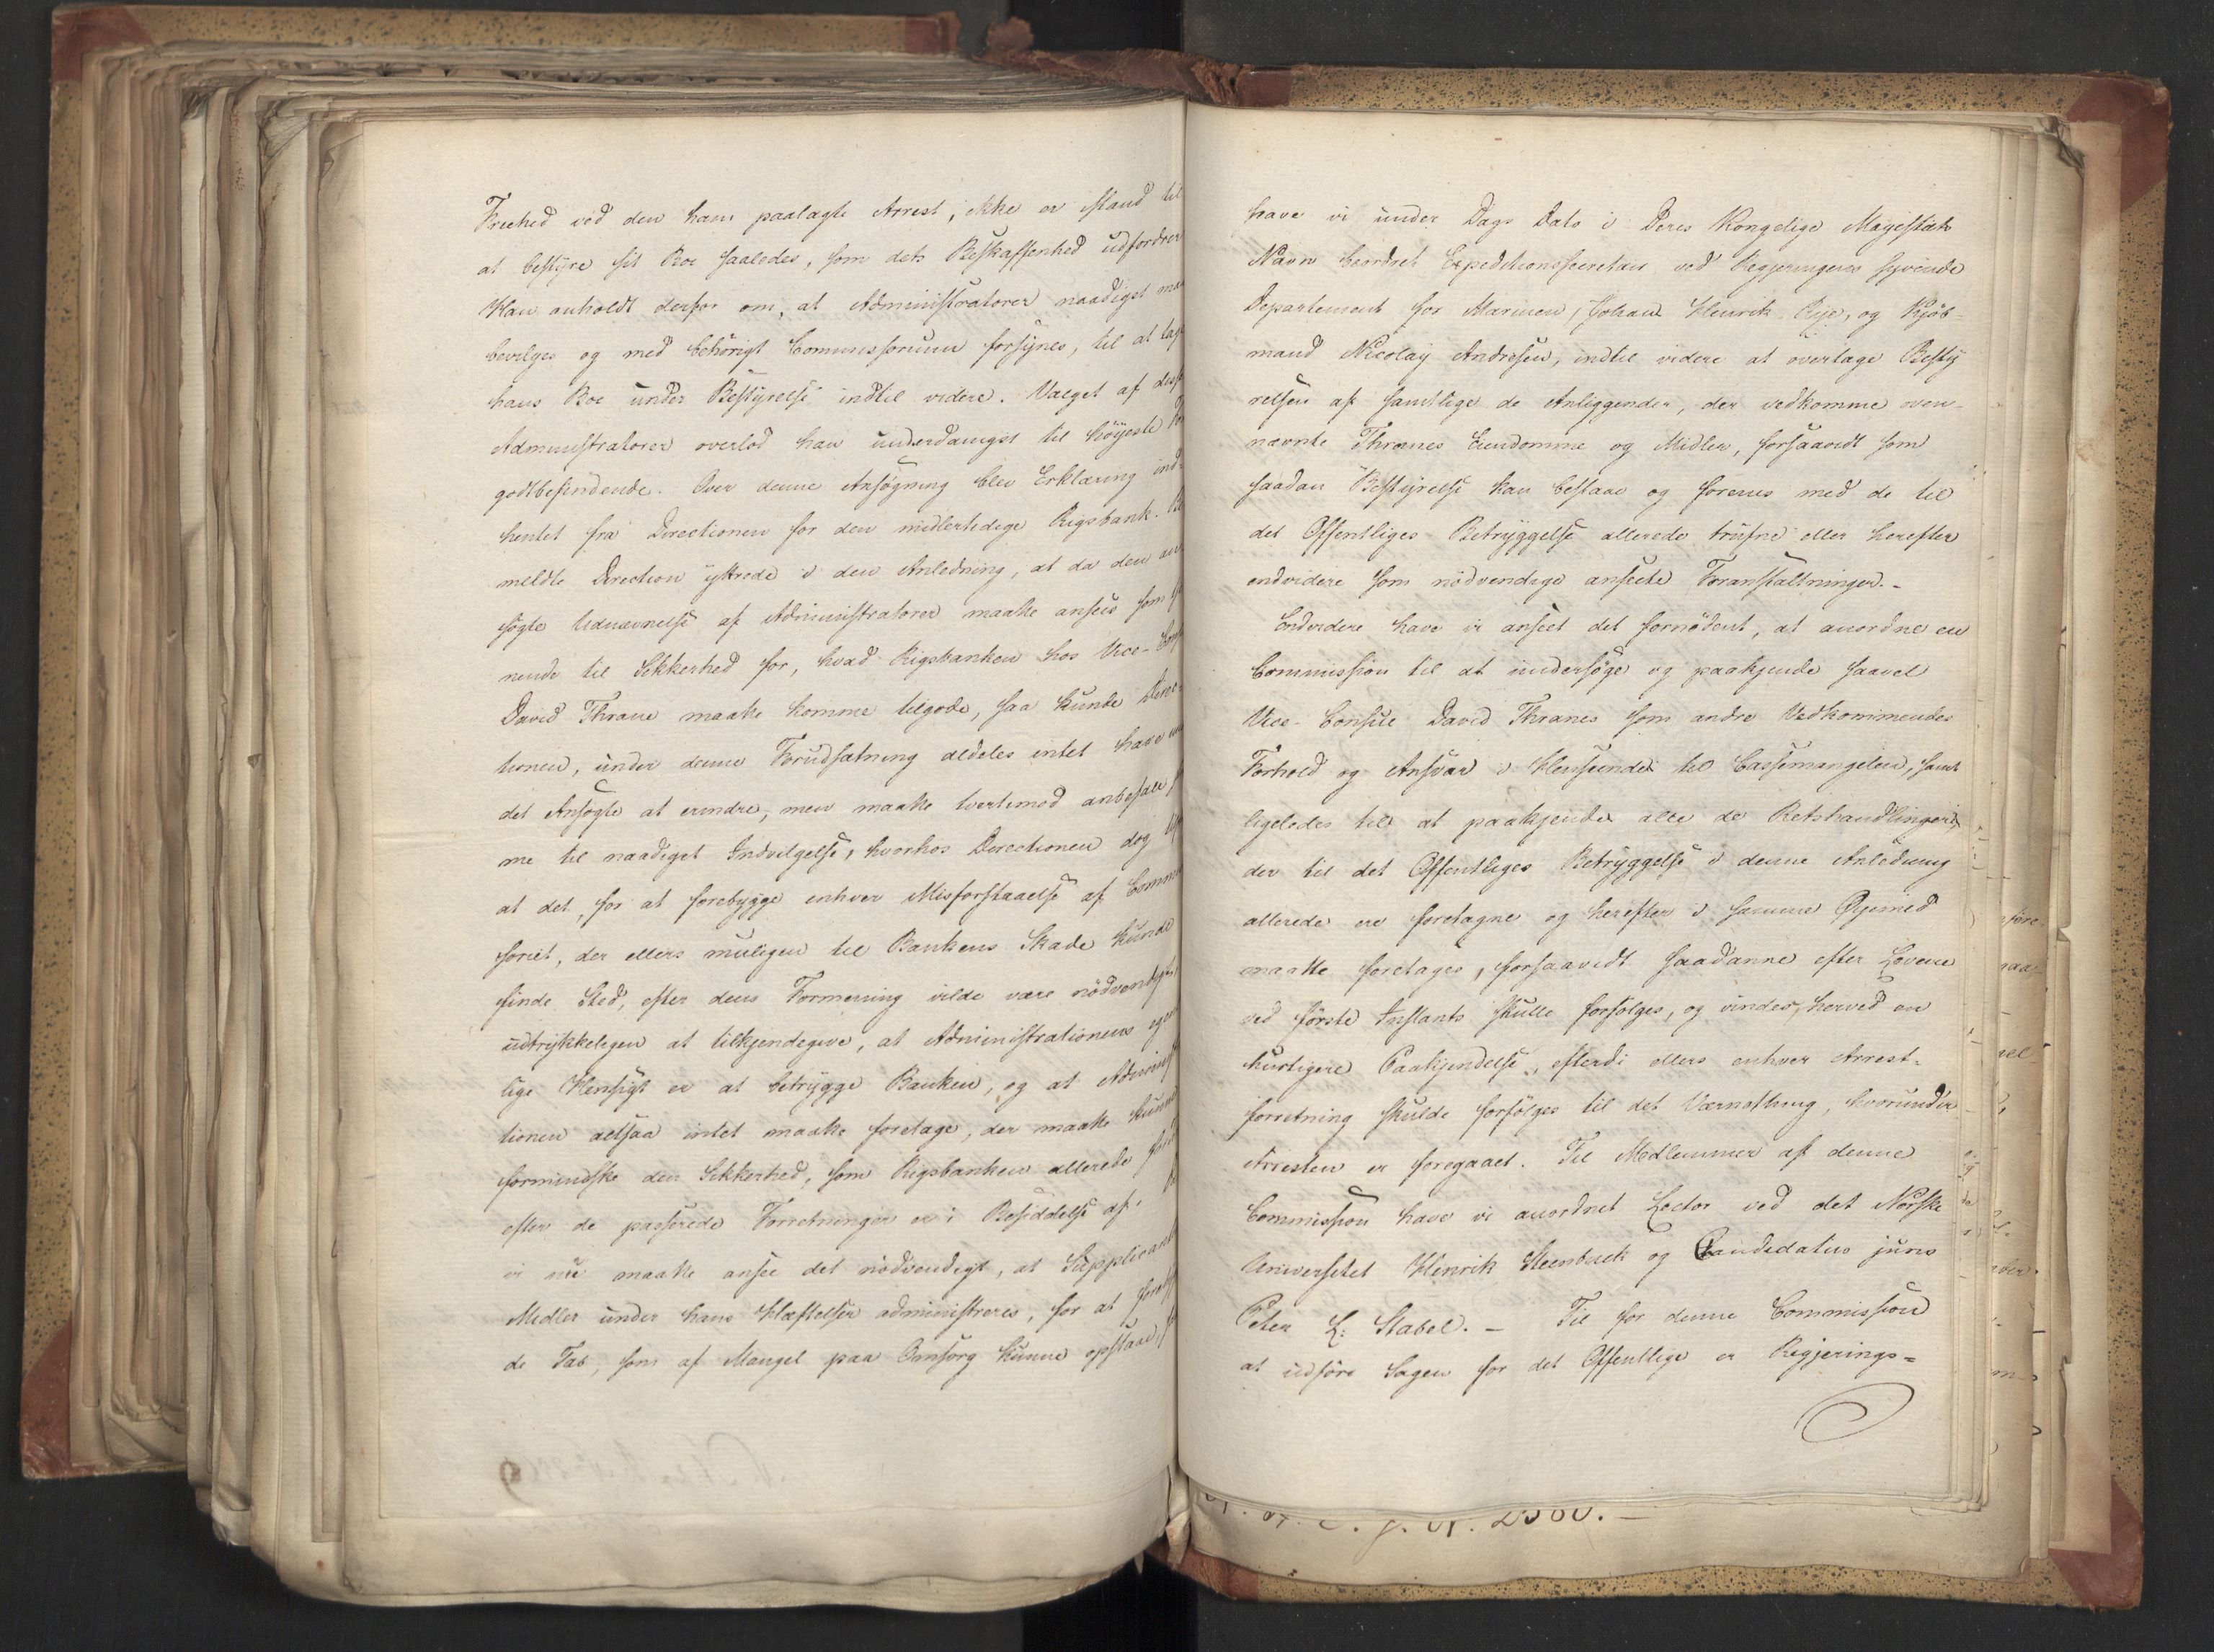 Friehed ved den ham paalagte Arrest, ikke er istand til
at bestyre sit Boe saaledes, som dets Beskaffenhed udfordrer
Han anholdt derfor om, at Administratorer naadigst maa
bevilges og med behörigt Commissorium forsynes, til at tage
hans Boe under Bestyrelse indtil videre. Valget af disse
Administratorer overlod han underdanigst til höyeste
godtbefindende. Over denne Ansögning blev Erklæring ind-
hentet fra Directionen for den midlertidige Rigsbank.
meldte Direction yttrede i den Anledning, at da den an
sögte Udnævnelse af Administratorer maatte ansees som
nende til Sikkerhed for, hvad Rigsbanken hos Vice-Cons
David Thrane maatte komme tilgode, saa kunde Direc-
tionen, under denne Forudsætning aldeles intet have
det Ansögte at erindre, men maatte tvertimod anbefale
me til naadigst Indvilgelse, hvorhos Directionen dog
at det, for at forebygge enhver Misforstaaelse af Commis
soriet, der ellers muligen til Bankens Skade kunde
finde Sted, efter dens Formening vilde være nödvendigt,
udtrykkeligen at tilkjendegive, at Administrationens egent
lige Hensigt er at betrygge Banken, og at Administra
tionen altsaa intet maatte foretage, der maatte kunne
formindske den Sikkerhed, som Rigsbanken allerede
efter de passerede Forretninger er i Besiddelse af.
vi nu maatte ansee det nödvendigt, at Supplicant
Midler under hans Hæftelse administreres, for at
de Tab, som af Mangel paa Omsorg kunne opstaae,
have vi under Dags Dato i Deres Kongelige Mayestæts
Navn beordret Expeditionssecretair ved Regjeringens syvende
Departement for Marinen, Johan Henrik Rye, og Kjöb-
mand Nicolay Andresen, indtil videre at overtage Besty
relsen af samtlige de Anliggender, der vedkomme oven-
nævnte Thranes Eiendomme og Midler, forsaavidt som
saadan Bestyrelse kan bestaae og forenes med de til
det Offentliges Betryggelse allerede trufne eller herefter
endvidere som nödvendige anseete Foranstaltninger.-
Endvidere have vi anseet det fornödent, at anordne en
Commission til at undersöge og paakjende saavel
Vice-Consul David Thranes som andre Vedkommendes
Forhold og Ansvar i Henseende til Cassemangelen, samt
ligeledes til at paakjende alle de Retshandlinger,
der til det Offentliges Betryggelse i denne Anledning
allerede ere foretagne og herefter i samme Øjemed
maatte foretages, forsaavidt saadanne efter Lovene
ved förste Instants skulle forfölges, og vindes herved en
hurtigere Paakjendelse, efterdi ellers enhver Arrest-
forretning skulde forfölges til det Værnething, hvorunder
Arresten er foregaaet. Til Medlemmer af denne
Commission have vi anordnet Lector ved det Norske
Universitet Henrik Steenbuch og Candidatus juris
Peter L: Stabel. - Til for denne Commission
at udföre Sagen for det Offentlige er Regjerings-